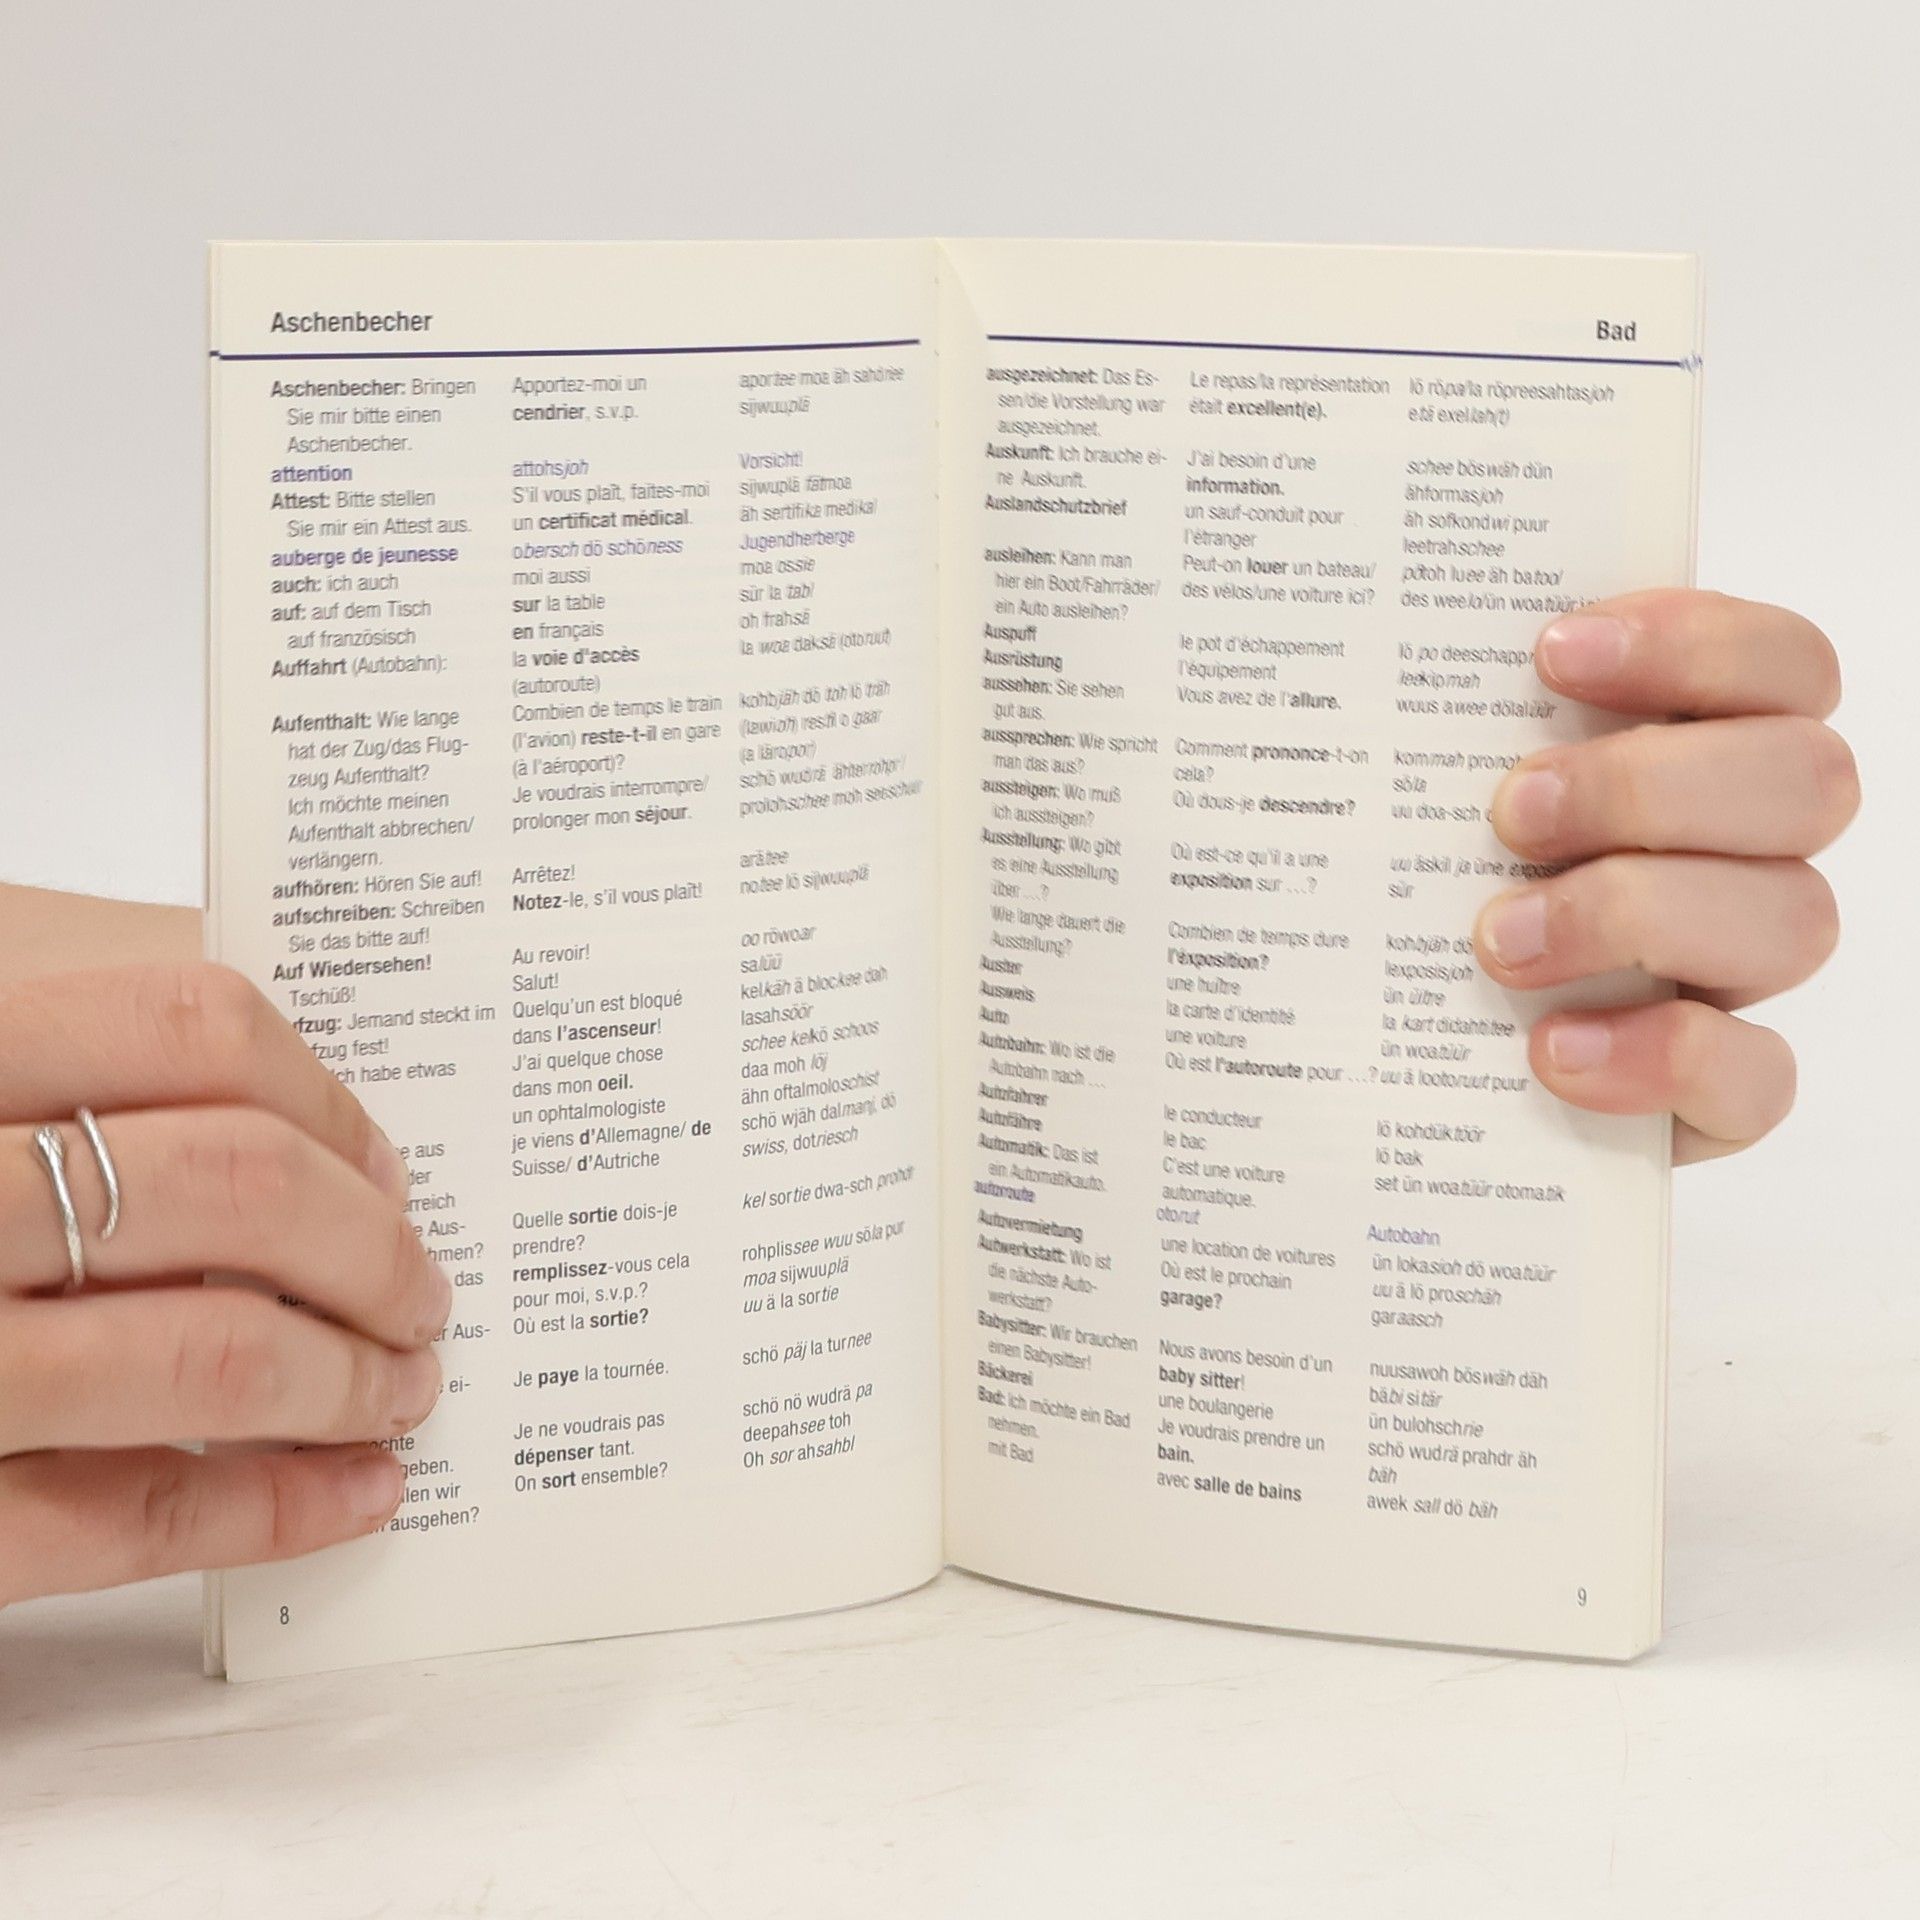 Aschenbecher
Aschenbecher: Bringen
Sie mir bitte einen
Aschenbecher.
attention
Attest: Bitte stellen
Sie mir ein Attest aus.
auberge de jeunesse
auch: ich auch
auf: auf dem Tisch
auf französisch
Auffahrt (Autobahn):
Aufenthalt: Wie lange
hat der Zug/das Flug-
zeug Aufenthalt?
Ich möchte meinen
Aufenthalt abbrechen/
verlängern.
aufhören: Hören Sie auf!
aufschreiben: Schreiben
Sie das bitte auf!
Auf Wiedersehen!
Tschüß!
fzug: Jemand steckt im
fzug fest!
ch habe etwas
e aus
der
rreich
e Aus-
hmen?
das
er Aus-
ei-
chte
geben.
len wir
ausgehen?
Apportez-moi un
cendrier, s.v.p.
attohsjoh
S'il vous plaît, faites-moi
un certificat médical.
obersch dö schöness
moi aussi
sur la table
en français
la voie d'accès
(autoroute)
Combien de temps le train
(l'avion) reste-t-il en gare
(à l'aéroport)?
Je voudrais interrompre/
prolonger mon séjour.
Arrêtez!
Notez-le, s'il vous plaît!
Au revoir!
Salut!
Quelqu'un est bloqué
dans l'ascenseur!
J'ai quelque chose
dans mon oeil.
un ophtalmologiste
je viens d'Allemagne/ de
Suisse/ d'Autriche
Quelle sortie dois-je
prendre?
remplissez-vous cela
pour moi, s.v.p.?
Où est la sortie?
Je paye la tournée.
Je ne voudrais pas
dépenser tant.
On sort ensemble?
aportee moa äh sahdriee
sijwuuplä
Vorsicht!
sijwuplä fätmoa
äh sertifika medikal
Jugendherberge
moa ossie
sür la tabl
oh frahsä
la woa daksä (otoruut)
kohbjäh dö toh lö träh
(lawioh) restil o gaar
(a läroport)
schö wudrä ähterrohpr/
prolohschee moh seeschuur
arätee
notee lö sijwuuplä
oo röwoar
salüü
kelkäh ä blockee dah
lasahsöör
schee kelkö schoos
daa moh löj
ähn oftalmoloschist
schö wjäh dalmanj, dö
swiss, dotriesch
kel sortie dwa-sch prohdr
rohplissee wuu söla pur
moa sijwuuplä
uu ä la sortie
schö päj la turnee
schö nö wudrä pa
deepahsee toh
Oh sor ahsahbl
8
Bad
ausgezeichnet: Das Es-
sen/die Vorstellung war
ausgezeichnet.
Auskunft: Ich brauche ei-
ne Auskunft.
Auslandschutzbrief
ausleihen: Kann man
hier ein Boot/Fahrräder/
ein Auto ausleihen?
Auspuff
Ausrüstung
aussehen: Sie sehen
gut aus.
aussprechen: Wie spricht
man das aus?
aussteigen: Wo muß
ich aussteigen?
Ausstellung: Wo gibt
es eine Ausstellung
über ...?
Wie lange dauert die
Ausstellung?
Auster
Ausweis
Auto
Autobahn: Wo ist die
Autobahn nach ...
Autofahrer
Autofähre
Automatik: Das ist
ein Automatikauto.
autoroute
Autovermietung
Autwerkstatt: Wo ist
die nächste Auto-
werkstatt?
Babysitter: Wir brauchen
einen Babysitter!
Bäckerei
Bad: Ich möchte ein Bad
nehmen.
mit Bad
Le repas/la représentation
était excellent(e).
J'ai besoin d'une
information.
un sauf-conduit pour
l'étranger
Peut-on louer un bateau/
des vélos/une voiture ici?
le pot d'échappement
l'équipement
Vous avez de l'allure.
Comment prononce-t-on
cela?
Où dous-je descendre?
Où est-ce qu'il a une
exposition sur ...?
Combien de temps dure
l'éxposition?
une huître
la carte d'identité
une voiture
Où est l'autoroute pour ...?
le conducteur
le bac
C'est une voiture
automatique.
otorut
une location de voitures
Où est le prochain
garage?
Nous avons besoin d'un
baby sitter!
une boulangerie
Je voudrais prendre un
bain.
avec salle de bains
lö röpa/la röpreesahtasjoh
etä exellah(t)
schee böswäh dün
ähformasjoh
äh sofkondwi puur
leetrahschee
pötoh luee äh batoo/
des weelo/ün woatüür
lö po deeschapp
leekipmah
wuus awee dölalüür
kommah pronoh
söla
uu doa-sch
uu äskil ja üne
sür
kohbjäh dö
lexposisjoh
ün üitre
la kart didahtitee
ün woatüür
uu ä lootoruut puur
lö kohdüktöör
lö bak
set ün woatüür otomatik
Autobahn
ün lokasioh dö woatüür
uu ä lö proschäh
garaasch
nuusawoh böswäh däh
bäbi sitär
ün bulohschrie
schö wudrä prahdr äh
bäh
awek sall dö bäh
9